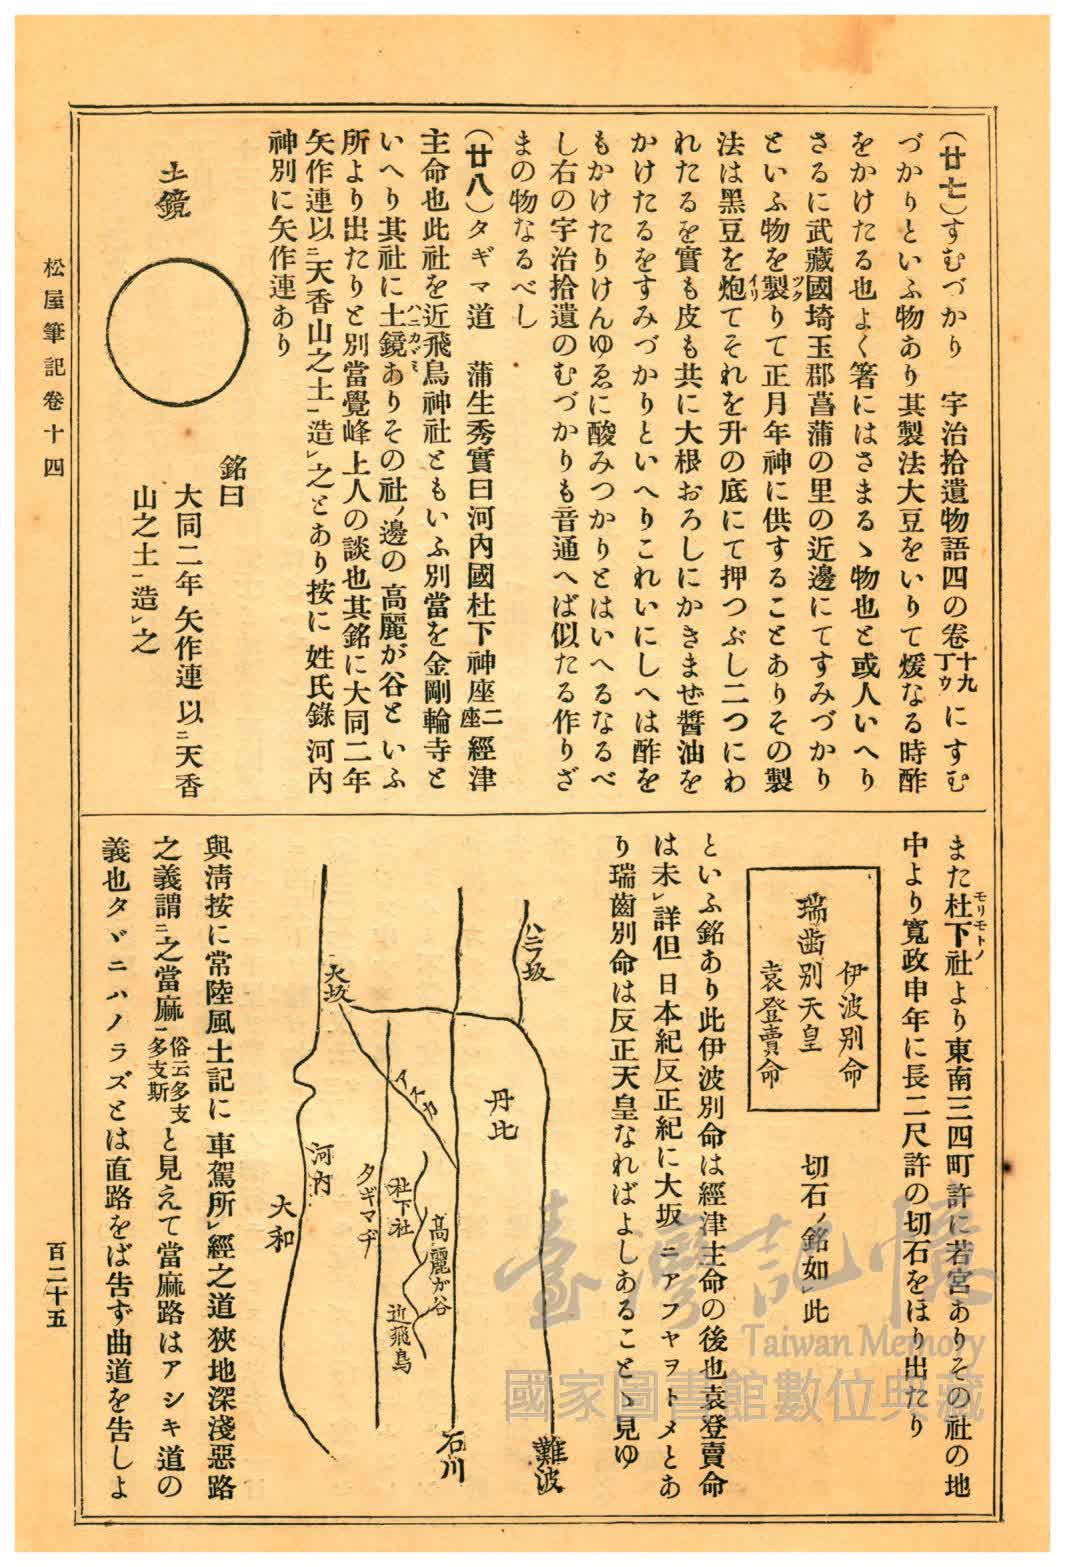 (廿七)すむづかり　宇治拾遺物語四の卷十九丁ウにすむ
づかりといふ物あり其製法大豆をいりて煖なる時酢
をかけたる也よく箸にはさまるゝ物也と或人いへり
さるに武藏國埼玉郡菖蒲の里の近邊にてすみづかり
といふ物を製りて正月年神に供することありその製
法は黑豆を炮てそれを升の底にて押つぶし二つにわ
れたるを實も皮も共に大根おろしにかきまぜ醬油を
かけたるをすみづかりといへりこれいにしへは酢を
もかけたりけんゆゑに酸みつかりとはいへるなるべ
し右の宇治拾遺のむづかりも音通へば似たる作りざ
まの物なるべし
(廿八)タギマ道　蒲生秀實曰河內國杜下神座二座經津
主命也此社を近飛鳥神社ともいふ別當を金剛輪寺と
いへり其社に土鏡ありその社ノ邊の高麗が谷といふ
所より出たりと別當覺峰上人の談也其銘に大同二年
矢作連以ニ天香山之土一造レ之とあり按に姓氏錄河內
神別に矢作連あり
土鏡
銘曰
大同二年矢作連以ニ天香
山之土一造レ之
また杜下社より東南三四町許に若宮ありその社の地
モリモトノ
中より寬政申年に長二尺許の切石をほり出たり
伊波別命
瑞齒別天皇
袁登賣命
切石ノ銘如レ此
といふ銘あり此伊波別命は經津主命の後也袁登賣命
は未レ詳但日本紀反正紀に大坂ニアフヤヲトメとあ
り瑞齒別命は反正天皇なればよしあることゝ見ゆ
ハニフ坂
大坂
アスカ
丹比
河內
大和
タギマヂ
杜下社
高麗が谷
近飛鳥
石川
難波
與淸按に常陸風土記に車駕所レ經之道狹地深淺惡路
之義謂ニ之當麻一俗云多支多支斯と見えて當麻路はアシキ道の
義也タヾニハノラズとは直路をば吿ず曲道を吿しよ
松屋筆記卷十四
百二十五
臺灣記憶
Taiwan Memory
國家圖書館數位典藏